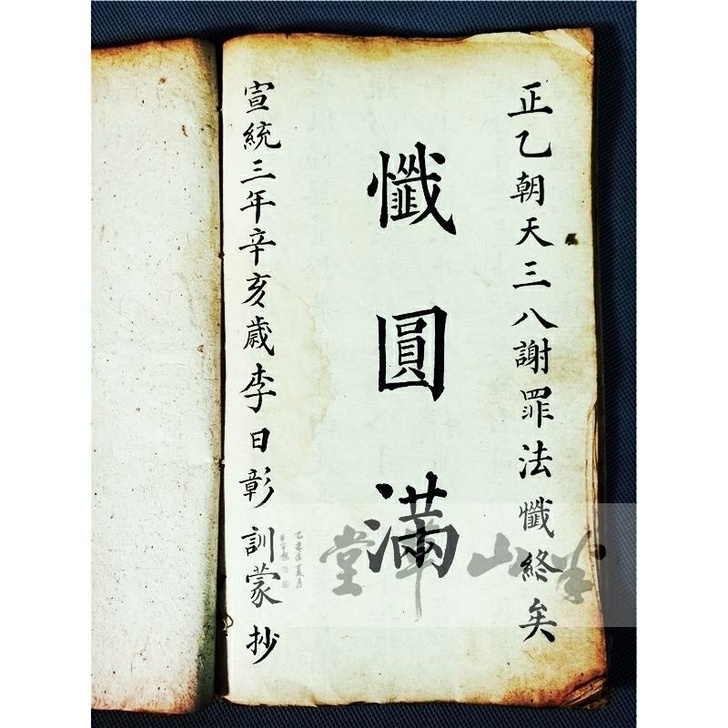 正乙朝天三八謝罪法懺終矣
懺圓滿
宣統三年辛亥歲李日彰訓蒙抄
半山華堂